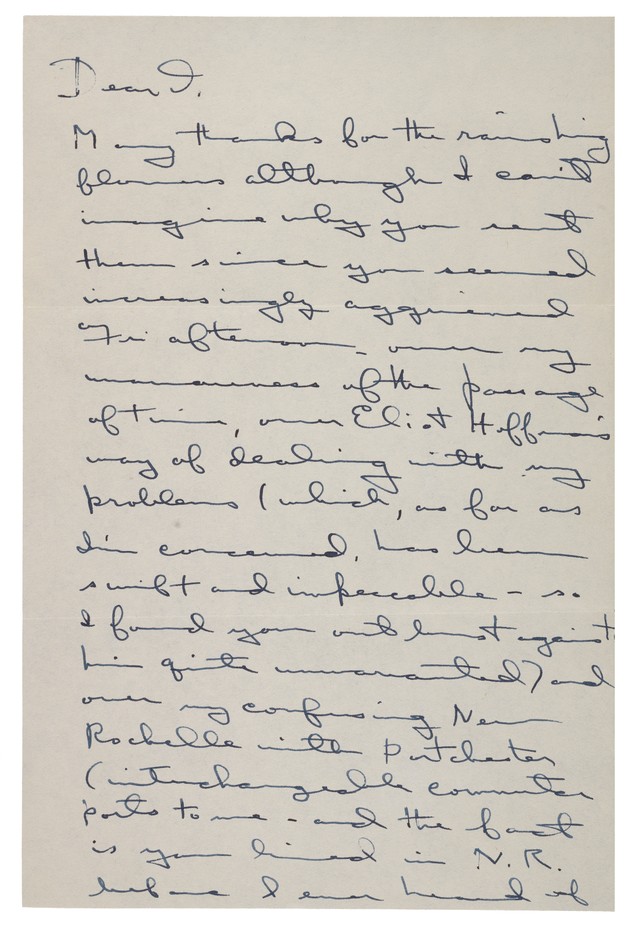 Dear I.
Many thanks for the ravishing
flowers although I can't
imagine why you sent
them since you seemed
increasingly aggrieved
Fri afternoon - over my
unawareness of the passage
of time, over Eliot Hoffman's
way of dealing with my
problems (which, as far as
I'm concerned, has been
swift and impeccable - so
I found your outburst against
him quite unwarranted) and
over my confusing New
Rochelle with Portchester
(interchangeable commuter
ports to me - and the fact
is you lived in N.R.
before I ever heard of